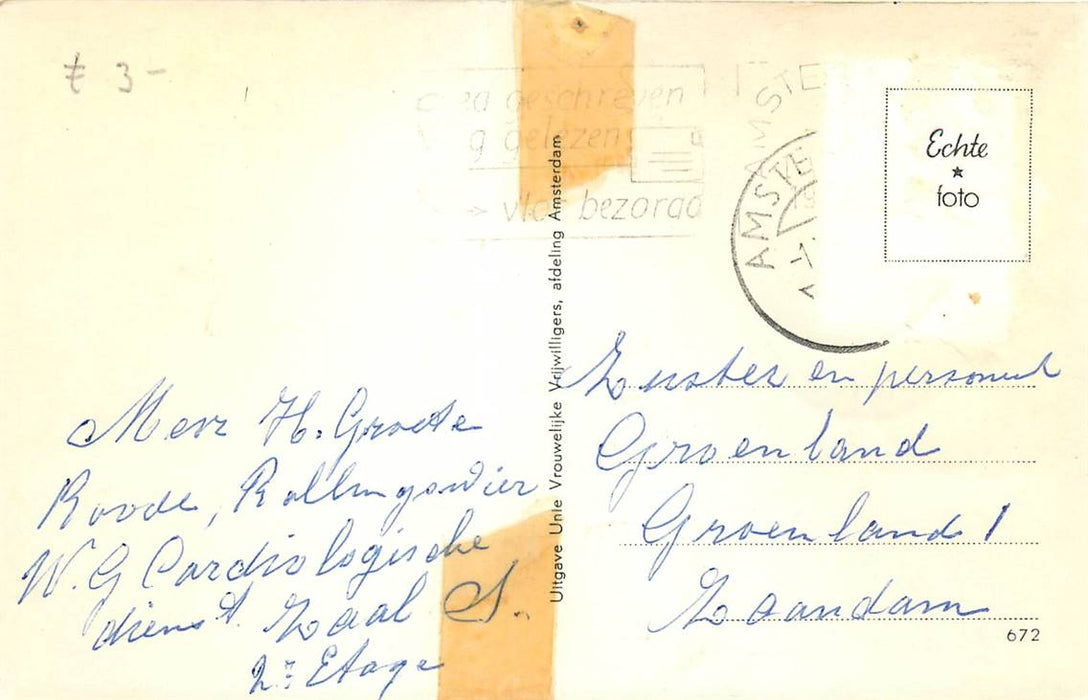 t 3-
geschreven
gelezen
bezorgd
AMSTE
AMSTE
Echte
foto
Uitgave Unie Vrouwelijke Vrijwilligers, afdeling Amsterdam
Mevr H. Groete
Roode,
W.G Cardiologische
dienst. Zaal S.
2e Etage
Zuster en personeel
Groenland
Groenland 1
Zaandam
672